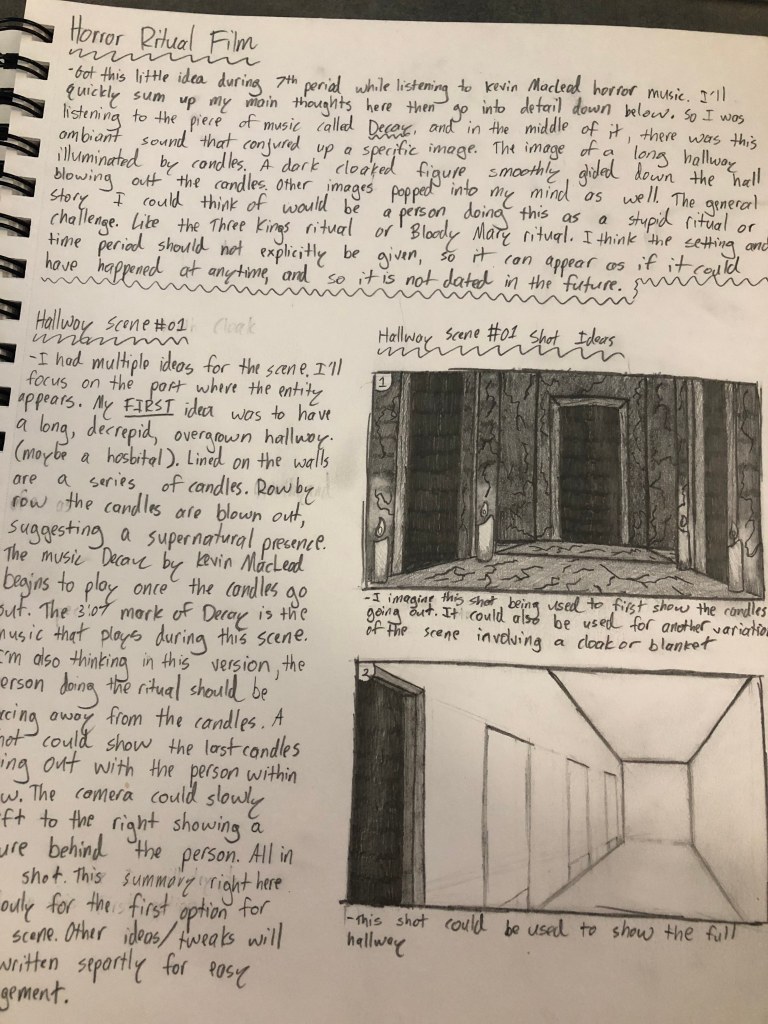 Horror Ritual Film
-Got this little idea during 7th period while listening to Kevin MacLeod horror music. I'll
quickly sum up my main thoughts here then go into detail down below. So I was
listening to the piece of music called Decay, and in the middle of it, there was this
ambiant sound that conjured up a specific image. The image of a long hallway
illuminated by candles. A dark cloaked figure smoothly glided down the hall
blowing out the candles. Other images popped into my mind as well. The general
story I could think of would be a person doing this as a stupid ritual or
challenge. Like the Three Kings ritual or Bloody Mary ritual. I think the setting and
time period should not explicitly be given, so it can appear as if it could
have happened at anytime, and so it is not dated in the future.
Hallway Scene #01
-I had multiple ideas for the scene. I'll
focus on the part where the entity
appears. My FIRST idea was to have
a long, decrepid, overgrown hallway.
(maybe a hosbital). Lined on the walls
are a series of candles. Row by
row the candles are blown out,
suggesting a supernatural presence.
The music Decay by Kevin MacLeod
begins to play once the candles go
out. The 3:07 mark of Decay is the
music that plays during this scene.
I'm also thinking in this version, the
erson doing the ritual should be
cing away from the candles. A
hot could show the last candles
ing out with the person within
w. The camera could slowly
ft to the right showing a
ure behind the person. All in
shot. This summary right here
only for the first option for
scene. Other ideas/tweaks will
written separtly for easy
gement.
Hallway Scene #01 Shot Ideas
1
-I imagine this shot being used to first show the candles
going out. It could also be used for another variation
of the scene involving a cloak or blanket
2
-This shot could be used to show the full
hallway